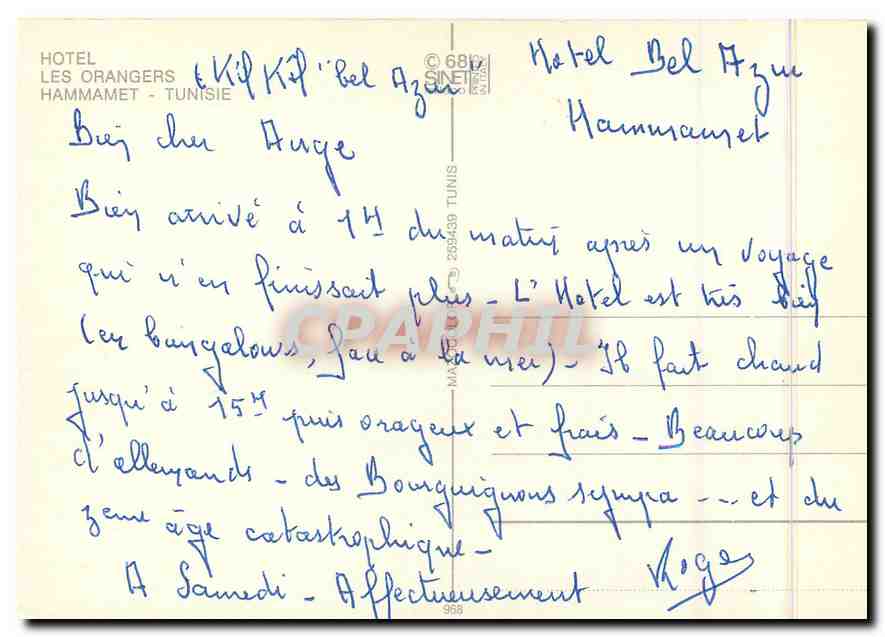 HOTEL
LES ORANGERS
HAMMAMET - TUNISIE
"Kif Kif" "bel Azur"
© 68
SINET
PRINTED
IN ITALY
Hotel Bel Azur
Hammamet
Bien cher Ange
Bien arrivé à 1H du matin après un voyage
qui n'en finissait plus - L'Hotel est très bien
(en bungalows, face à la mer) - Il fait chaud
jusqu'à 15H puis orageux et frais - Beaucoup
d'allemands - des Bourguignons sympa --- et du
3eme âge catastrophique -
A Samedi - Affectueusement Roger
259439 TUNIS
CPAPHIL
968